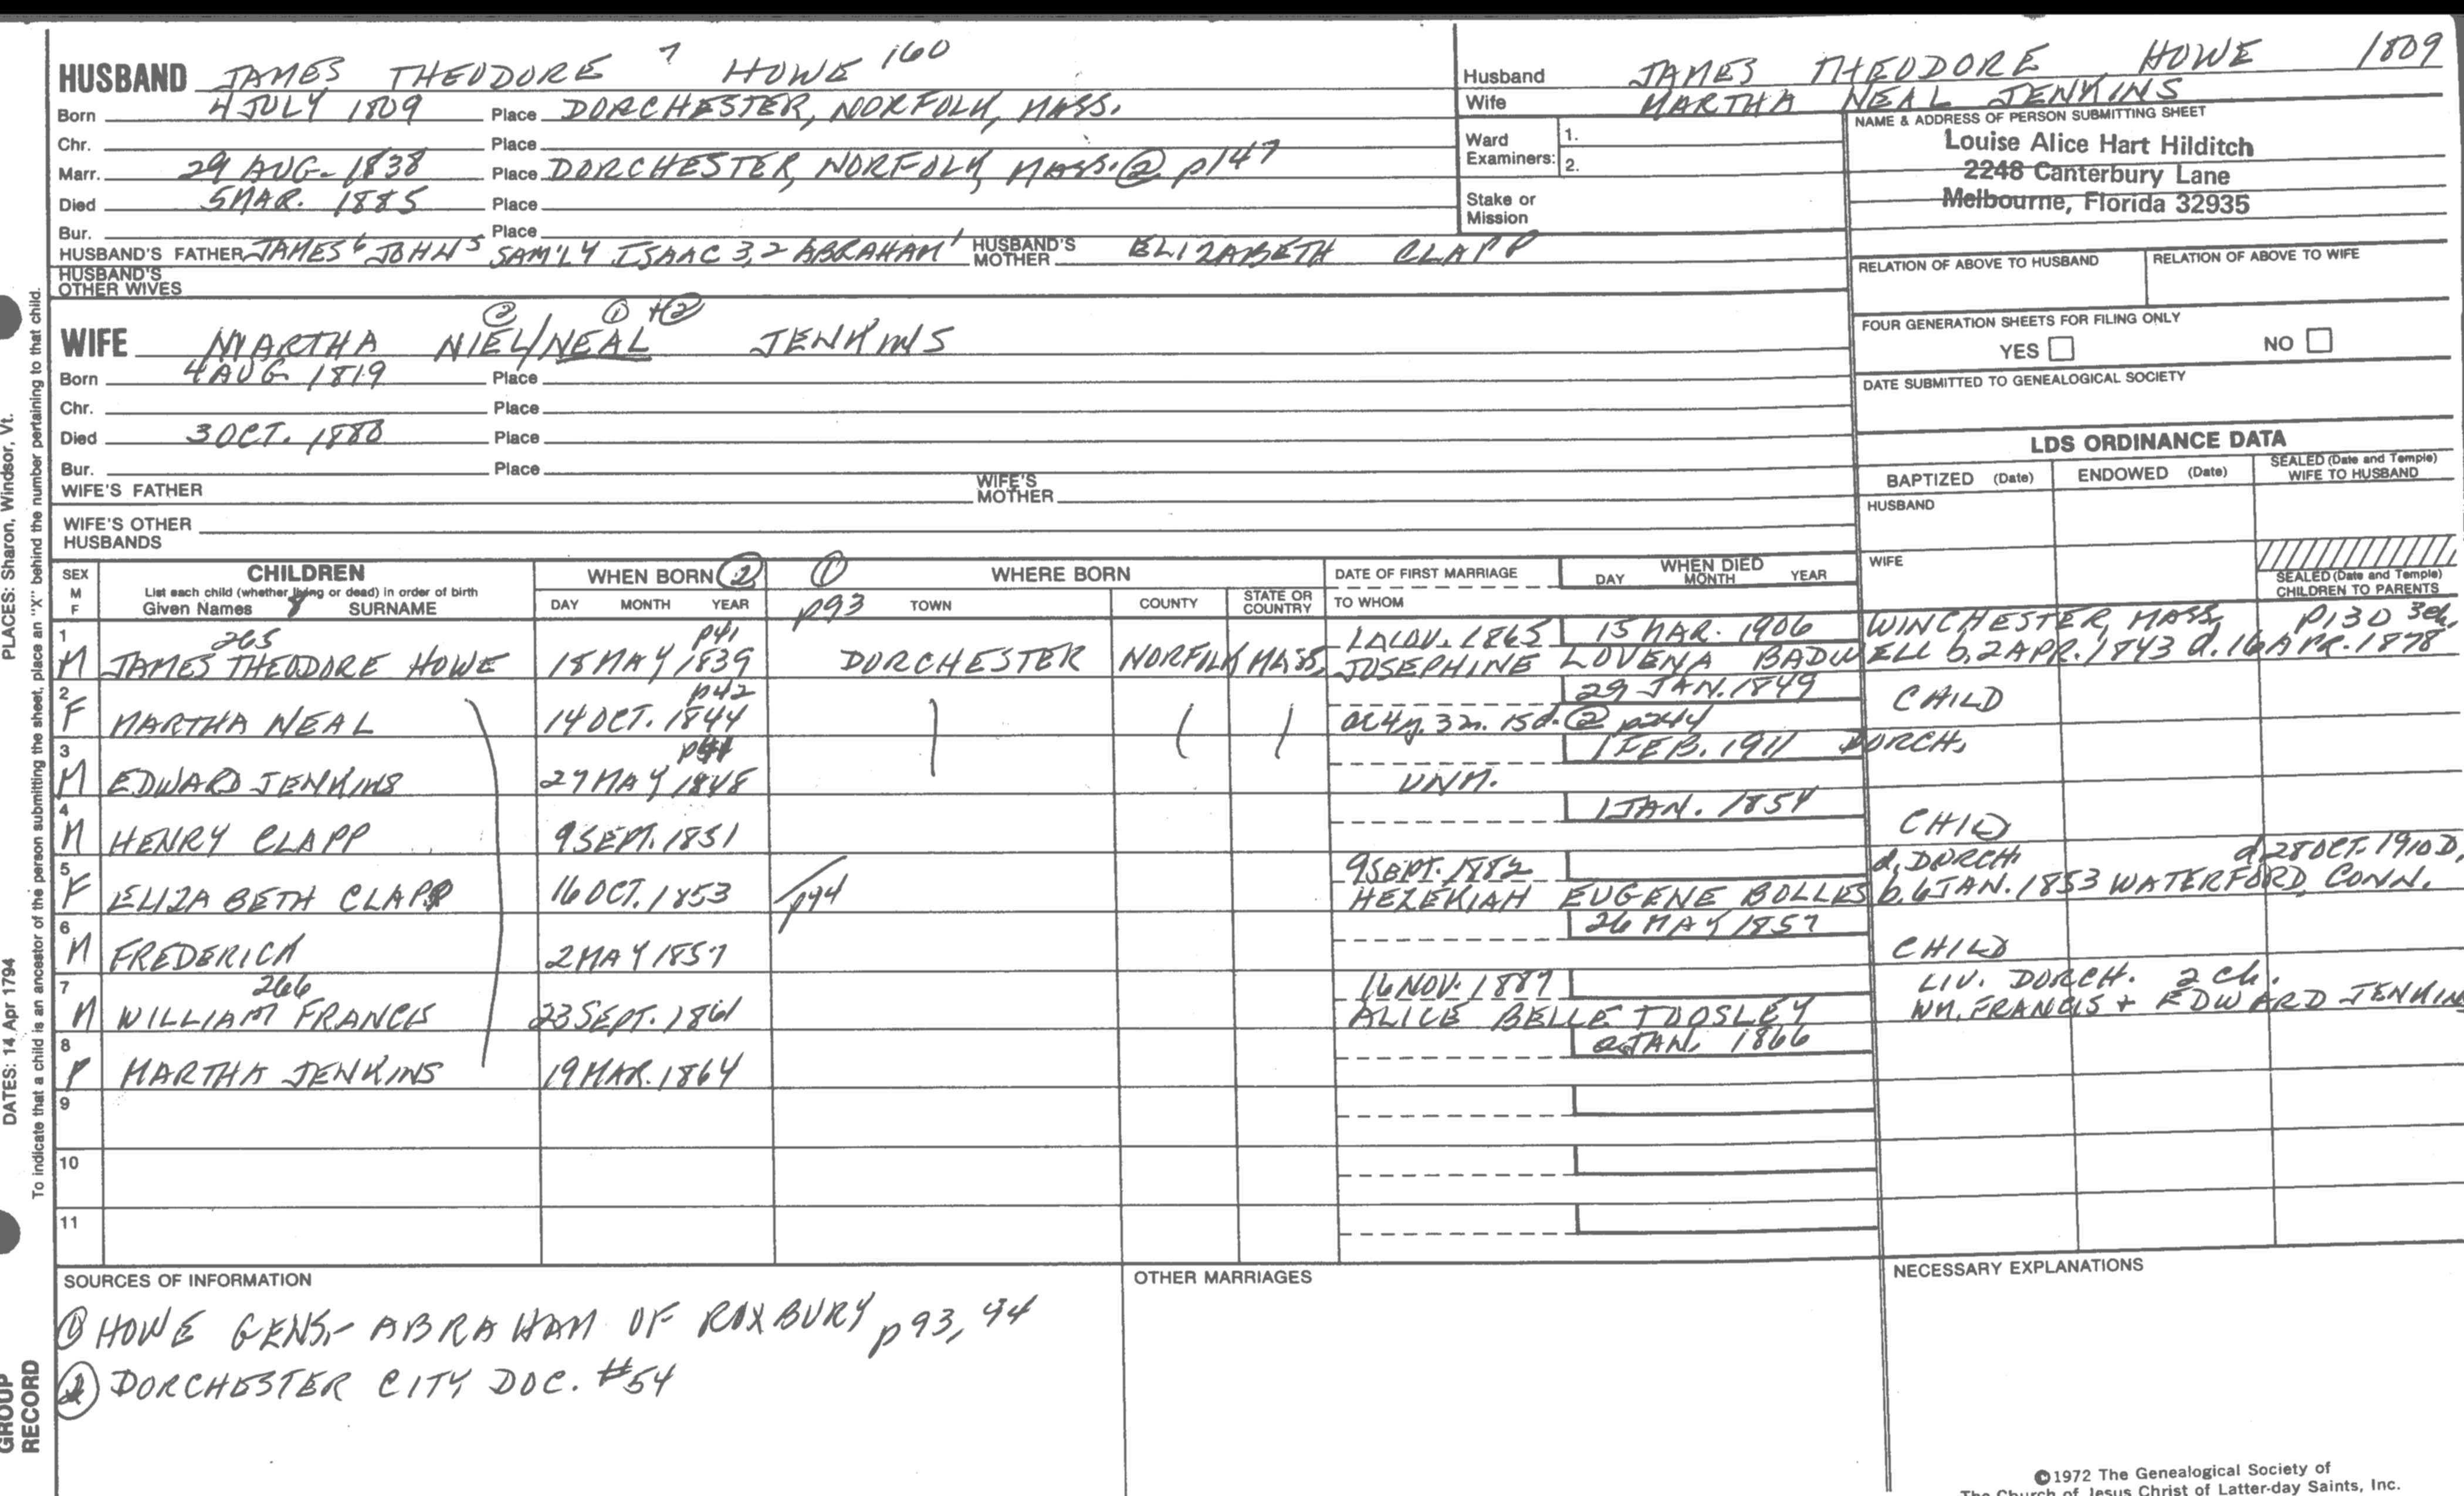 HUSBAND JAMES THEODORE 7 HOWE 160
Born 4 JULY 1809 Place DORCHESTER, NORFOLK, MASS.
Chr. Place
Marr. 29 AUG. 1838 Place DORCHESTER, NORFOLK, MASS. @ p147
Died 5 MAR. 1885 Place
Bur. Place
HUSBAND'S FATHER JAMES 6 JOHN 5 SAM'L 4 ISAAC 3, 2 ABRAHAM 1 HUSBAND'S MOTHER ELIZABETH CLAPP
HUSBAND'S OTHER WIVES
Husband JAMES THEODORE HOWE 1809
Wife MARTHA NEAL JENKINS
Ward Examiners: 1.
2.
Stake or Mission
NAME & ADDRESS OF PERSON SUBMITTING SHEET
Louise Alice Hart Hilditch
2248 Canterbury Lane
Melbourne, Florida 32935
RELATION OF ABOVE TO HUSBAND RELATION OF ABOVE TO WIFE
FOUR GENERATION SHEETS FOR FILING ONLY
YES NO
DATE SUBMITTED TO GENEALOGICAL SOCIETY
② ① + ②
WIFE MARTHA NIEL/NEAL JENKINS
Born 4 AUG 1819 Place
Chr. Place
Died 3 OCT. 1880 Place
Bur. Place
WIFE'S FATHER WIFE'S MOTHER
WIFE'S OTHER HUSBANDS
LDS ORDINANCE DATA
BAPTIZED (Date) ENDOWED (Date) SEALED (Date and Temple) WIFE TO HUSBAND
HUSBAND
WIFE
SEALED (Date and Temple) CHILDREN TO PARENTS
SEX M F CHILDREN WHEN BORN ② ① WHERE BORN DATE OF FIRST MARRIAGE WHEN DIED
List each child (whether living or dead) in order of birth
Given Names 8 SURNAME DAY MONTH YEAR p93 TOWN COUNTY STATE OR COUNTRY TO WHOM DAY MONTH YEAR
1 265 p41 NOV. 1865 15 MAR. 1906 WINCHESTER, MASS. p130 3ch.
M JAMES THEODORE HOWE 18 MAY 1839 DORCHESTER NORFOLK MASS. JOSEPHINE LOVENA BADWELL b. 2 APR. 1843 d. 16 APR. 1878
2 p42 29 JAN. 1849 CHILD
F MARTHA NEAL 14 OCT. 1844 ae 4y. 3m. 15d. @ p244
3 1 FEB. 1911 DORCH.
M EDWARD JENKINS 27 MAY 1848 UNM.
4 1 JAN. 1854 CHILD
M HENRY CLAPP 9 SEPT. 1851
5 9 SEPT. 1882 d. DORCH. d. 28 OCT. 1910 D.
F ELIZABETH CLAPP 16 OCT. 1853 p94 HEZEKIAH EUGENE BOLLES b. 6 JAN. 1853 WATERFORD, CONN.
6 26 MAY 1857 CHILD
M FREDERICK 2 MAY 1857
7 266 16 NOV. 1887 LIV. DORCH. 2 ch.
M WILLIAM FRANCIS 23 SEPT. 1861 ALICE BELLE TOOSLEY WM. FRANCIS + EDWARD JENKIN
8 JAN. 1866
F MARTHA JENKINS 19 MAR. 1864
9
10
11
SOURCES OF INFORMATION OTHER MARRIAGES NECESSARY EXPLANATIONS
① HOWE GENS.- ABRAHAM OF ROXBURY p93, 94
② DORCHESTER CITY DOC. #54
©1972 The Genealogical Society of
The Church of Jesus Christ of Latter-day Saints, Inc.
PLACES: Sharon, Windsor, Vt.
DATES: 14 Apr 1794
To indicate that a child is an ancestor of the person submitting the sheet, place an "X" behind the number pertaining to that child.
GROUP RECORD